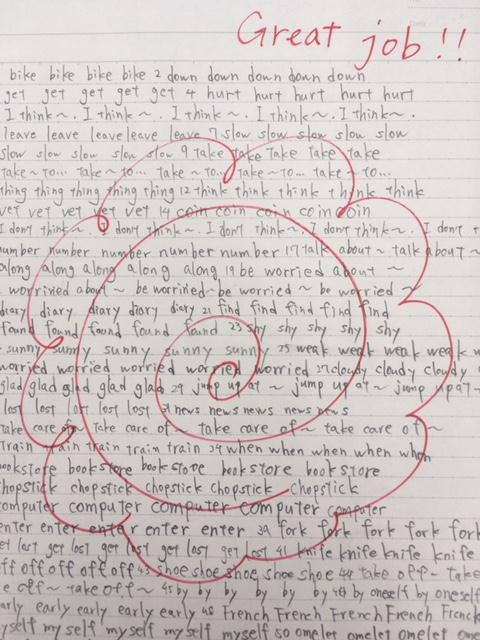 Great job!!
bike bike bike bike 2 down down down down down
get get get get get 4 hurt hurt hurt hurt hurt
I think~. I think~. I think~. I think~. I think~.
leave leave leave leave leave 7 slow slow slow slow slow
slow slow slow slow slow 9 take take take take take
take~to... take~to... take~to... take~to... take~to...
thing thing thing thing thing 12 think think think think think
vet vet vet vet vet 14 coin coin coin coin coin
I don't think~. I don't think~. I don't think~. I don't think~. I don't t
number number number number number 17 talk about~ talk about~
along along along along along 19 be worried about~
worried about~ be worried~ be worried~ be worried~
diary diary diary diary diary 21 find find find find find
found found found found found 23 shy shy shy shy shy
sunny sunny sunny sunny sunny 25 weak weak weak weak w
worried worried worried worried worried 27 cloudy cloudy cloudy
glad glad glad glad glad 29 jump up at~ jump up at~ jump up at~
lost lost lost lost lost 31 news news news news news
take care of~ take care of~ take care of~ take care of~
train train train train train 34 when when when when when
bookstore bookstore bookstore bookstore bookstore
chopstick chopstick chopstick chopstick chopstick
computer computer computer computer computer
enter enter enter enter enter 39 fork fork fork fork fork
et lost get lost get lost get lost get lost 41 knife knife knife knife
ff off off off off 43 shoe shoe shoe shoe shoe 44 take off~ take
e off~ take off~ 45 by by by by by by oneself by oneself
early early early early 48 French French French French French
yself myself myself myself myself 50 omelet omelet omelet omelet